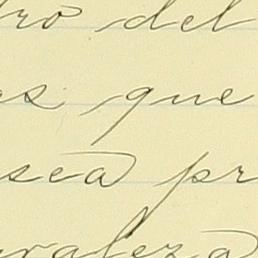 tro del
es que
sea pr
uraleza